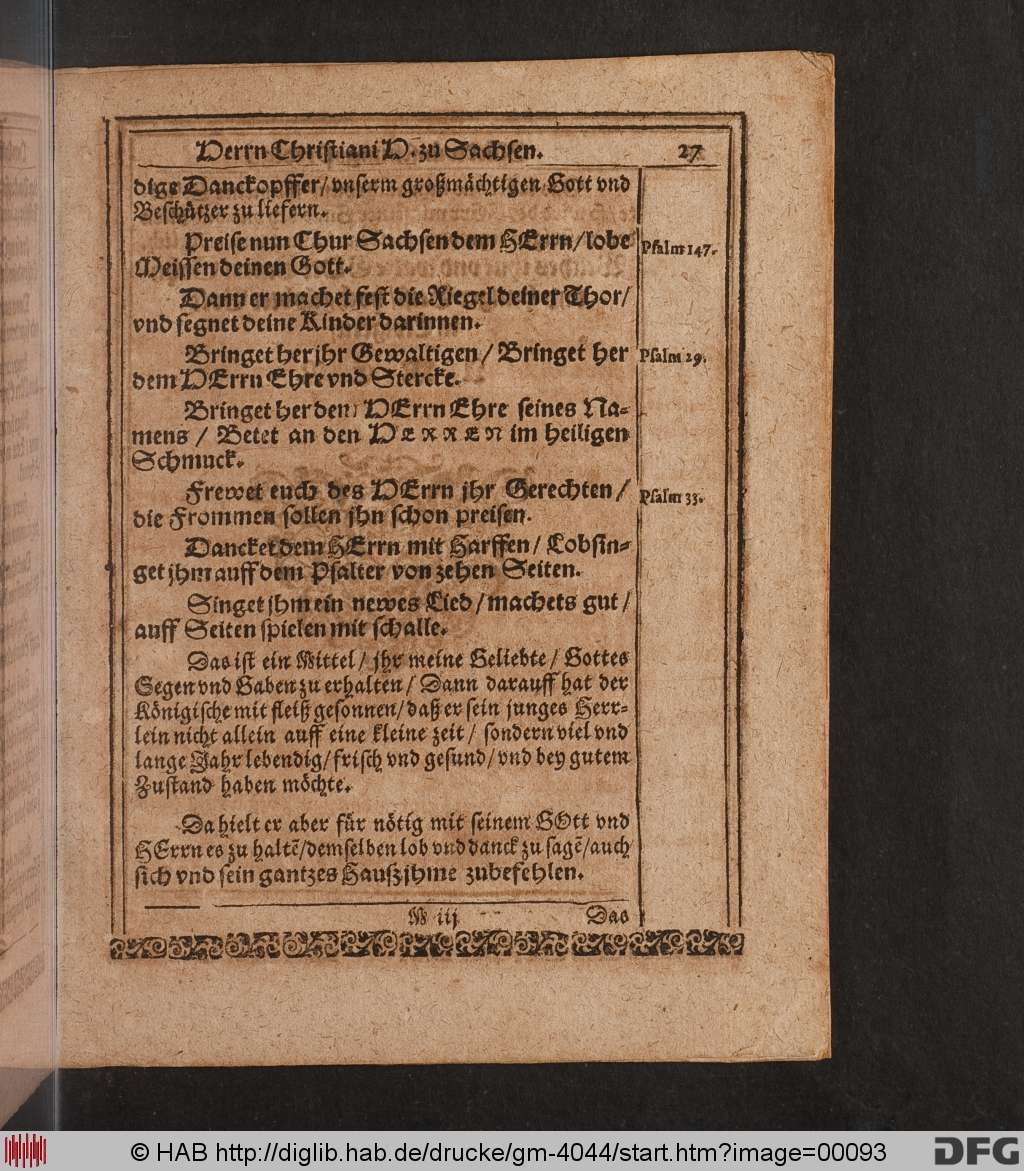 Herrn Christiani H. zu Sachsen. 27
dige Danckopffer/ vnserm großmächtigen Gott vnd
Beschützer zu liefern.
Preise nun Chur Sachsen dem HErrn/ lobe
Psalm 147.
Meissen deinen Gott.
Dann er machet fest die Riegel deiner Thor/
vnd segnet deine Kinder darinnen.
Bringet her jhr Gewaltigen/ Bringet her
Psalm 29.
dem HErrn Ehre vnd Stercke.
Bringet her dem HErrn Ehre seines Na-
mens / Betet an den HERREN im heiligen
Schmuck.
Frewet euch des HErrn jhr Gerechten/
Psalm 33.
die Frommen sollen jhn schon preisen.
Dancket dem HErrn mit Harffen/ Lobsin-
get jhm auff dem Psalter von zehen Seiten.
Singet jhm ein newes Lied/ machets gut/
auff Seiten spielen mit schalle.
Das ist ein Mittel/ jhr meine Geliebte/ Gottes
Segen vnd Gaben zu erhalten/ Dann darauff hat der
Königische mit fleiß gesonnen/ daß er sein junges Herr-
lein nicht allein auff eine kleine zeit/ sondern viel vnd
lange Jahr lebendig/ frisch vnd gesund/ vnd bey gutem
Zustand haben möchte.
Da hielt er aber für nötig mit seinem GOtt vnd
HErrn es zu haltẽ/ demselben lob vnd danck zu sagẽ/ auch
sich vnd sein gantzes Hauß jhme zubefehlen.
M iij
Das
© HAB http://diglib.hab.de/drucke/gm-4044/start.htm?image=00093
DFG